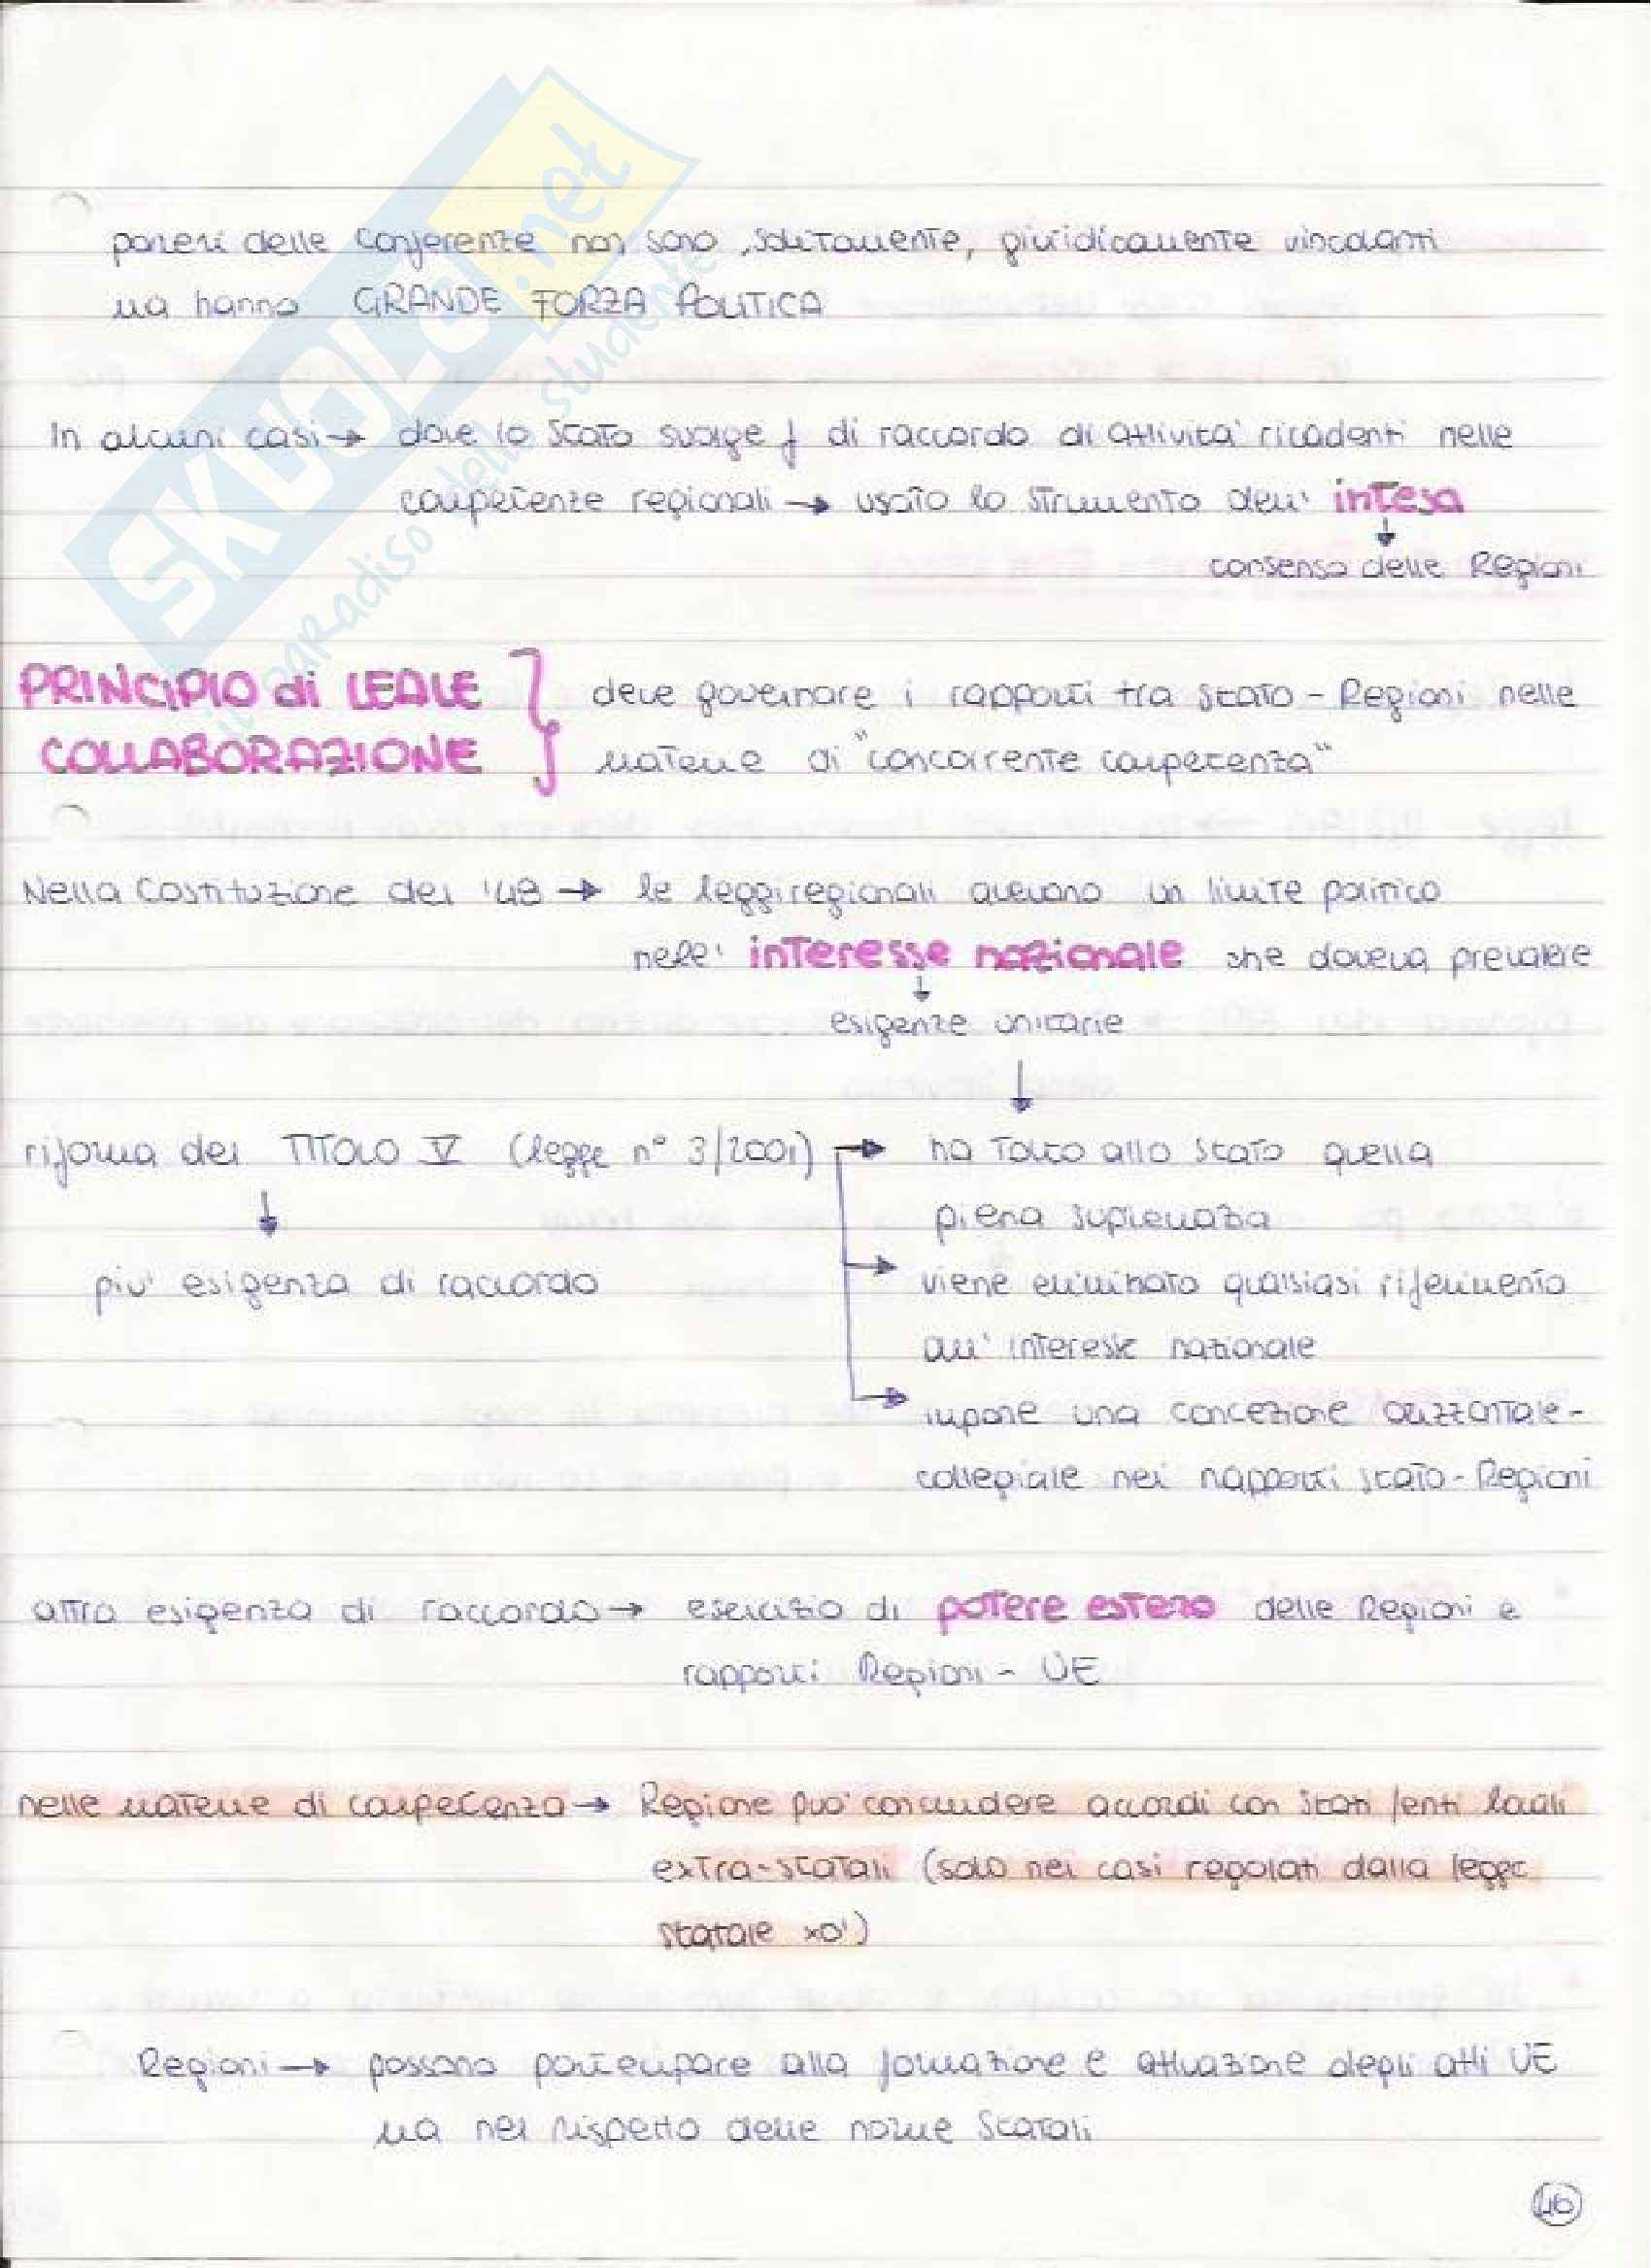 pareri delle Conferenze non sono, solitamente, giuridicamente vincolanti
ma hanno GRANDE FORZA POLITICA
In alcuni casi → dove lo Stato svolge f di raccordo di attività ricadenti nelle
competenze regionali → usato lo strumento dell' intesa
↓
consenso delle Regioni
PRINCIPIO di LEALE COLLABORAZIONE } deve governare i rapporti tra Stato - Regioni nelle
materie di "concorrente competenza"
Nella Costituzione del '48 → le leggi regionali avevano un limite politico
nell' interesse nazionale che doveva prevalere
↓
esigenze unitarie
↓
riforma del TITOLO V (legge n° 3/2001) → ha tolto allo Stato quella
piena supremazia
↓
più esigenza di raccordo
→ viene eliminato qualsiasi riferimento
all' interesse nazionale
→ impone una concezione orizzontale-
collegiale nei rapporti Stato - Regioni
altra esigenza di raccordo → esercizio di potere estero delle Regioni e
rapporti Regioni - UE
nelle materie di competenza → Regione può concludere accordi con Stati / enti locali
extra-statali (solo nei casi regolati dalla legge
statale xò)
Regioni → possono partecipare alla formazione e attuazione degli atti UE
ma nel rispetto delle norme Statali
46
SKUOLA.net
il paradiso dello studente